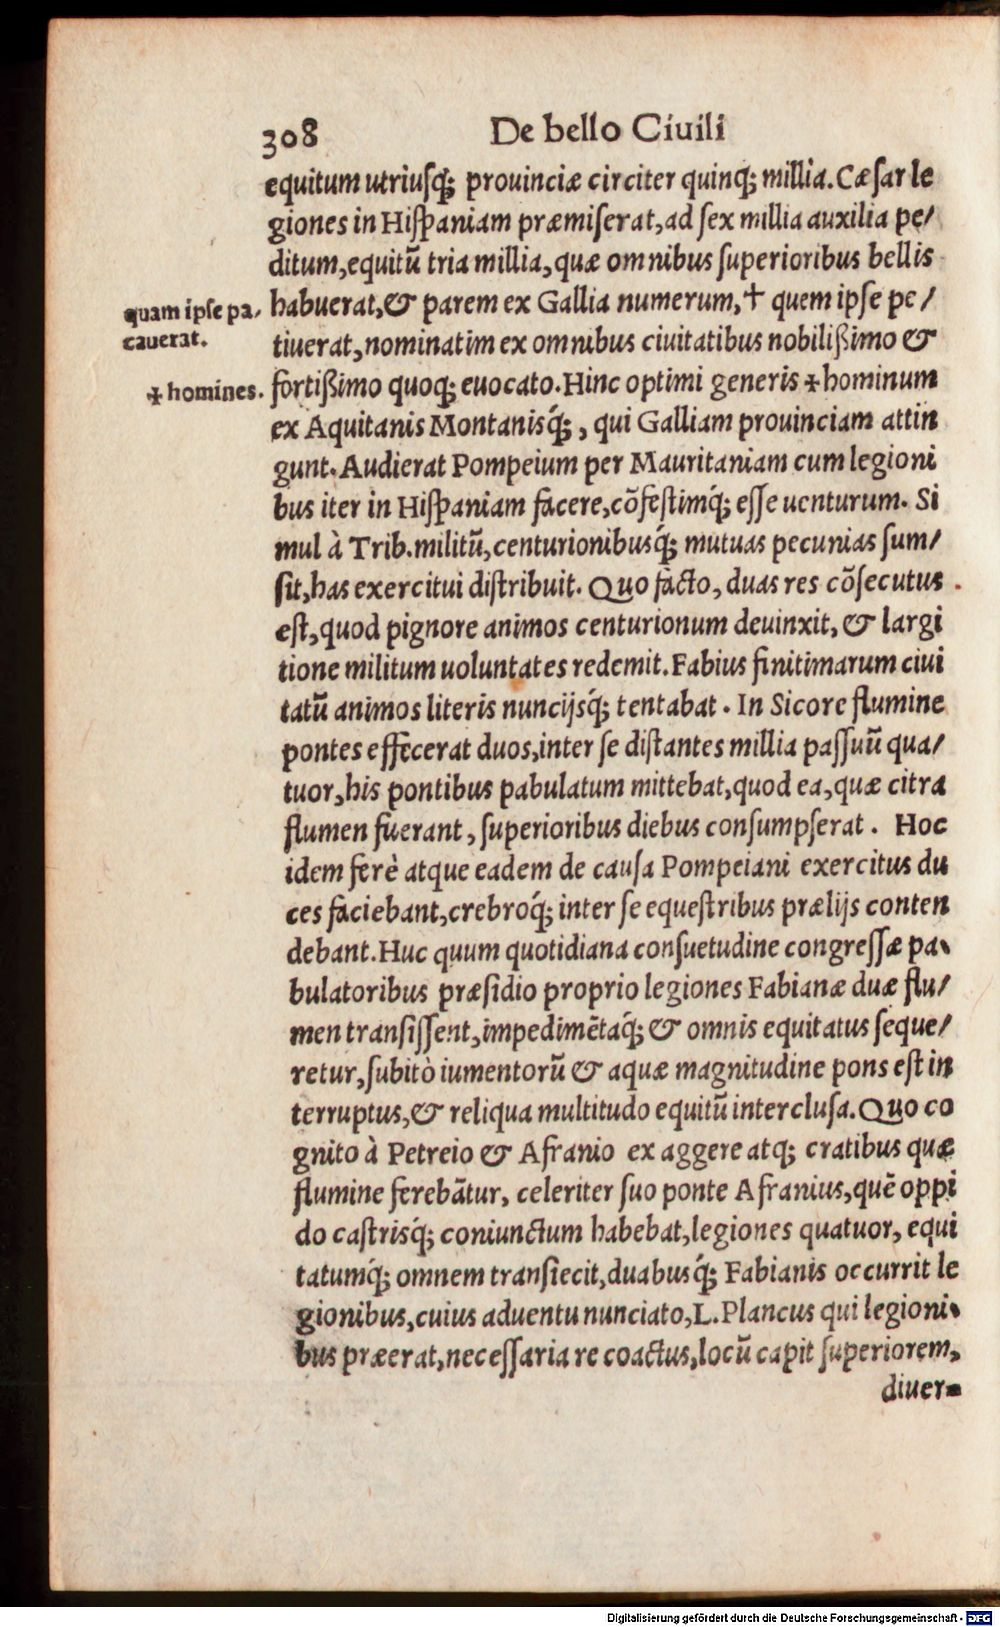 308 De bello Ciuili
equitum utriusq; prouinciæ circiter quinq; millia. Cæsar le
giones in Hispaniam præmiserat, ad sex millia auxilia pe/
ditum, equitũ tria millia, quæ omnibus superioribus bellis
habuerat, & parem ex Gallia numerum, † quem ipse pe/
quam ipse pa,
cauerat.
tiuerat, nominatim ex omnibus ciuitatibus nobilißimo &
fortißimo quoq; euocato. Hinc optimi generis ✢ hominum
✢ homines.
ex Aquitanis Montanisq́;, qui Galliam prouinciam attin
gunt. Audierat Pompeium per Mauritaniam cum legioni
bus iter in Hispaniam facere, cõfestimq́; esse uenturum. Si
mul à Trib. militũ, centurionibusq́; mutuas pecunias sum/
sit, has exercitui distribuit. Quo facto, duas res cõsecutus
est, quod pignore animos centurionum deuinxit, & largi
tione militum uoluntates redemit. Fabius finitimarum ciui
tatũ animos literis nuncijsq́; tentabat. In Sicore flumine
pontes effecerat duos, inter se distantes millia passuũ qua/
tuor, his pontibus pabulatum mittebat, quod ea, quæ citra
flumen fuerant, superioribus diebus consumpserat. Hoc
idem ferè atque eadem de causa Pompeiani exercitus du
ces faciebant, crebroq́; inter se equestribus prælijs conten
debant. Huc quum quotidiana consuetudine congressæ pa-
bulatoribus præsidio proprio legiones Fabianæ duæ flu/
men transissent, impedimẽtaq́; & omnis equitatus seque/
retur, subitò iumentorũ & aquæ magnitudine pons est in
terruptus, & reliqua multitudo equitũ interclusa. Quo co
gnito à Petreio & Afranio ex aggere atq; cratibus quæ
flumine ferebãtur, celeriter suo ponte Afranius, quẽ oppi
do castrisq́; coniunctum habebat, legiones quatuor, equi
tatumq́; omnem transiecit, duabusq́; Fabianis occurrit le
gionibus, cuius aduentu nunciato, L. Plancus qui legioni-
bus præerat, necessaria re coactus, locũ capit superiorem,
diuer=
Digitalisierung gefördert durch die Deutsche Forschungsgemeinschaft - DFG